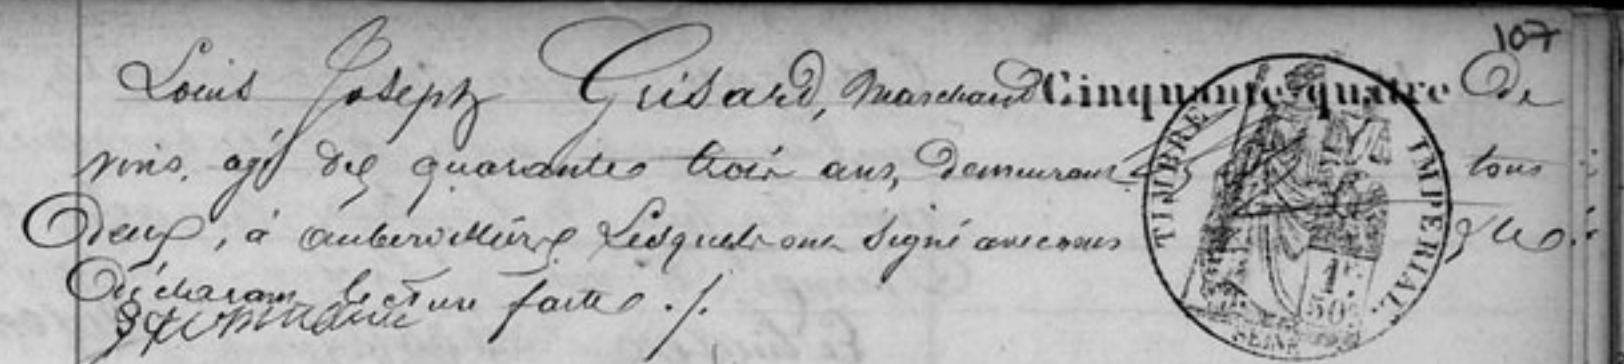 107
Louis Joseph Guisard, Marchand Cinquante quatre De
vins, agé de quarante trois ans, Demeurant tous
Deux, à aubervilliers Lesquels ont Signé avec nous
Déclarant lecture faite ./.
TIMBRE IMPERIAL
1F 50C
SEINE